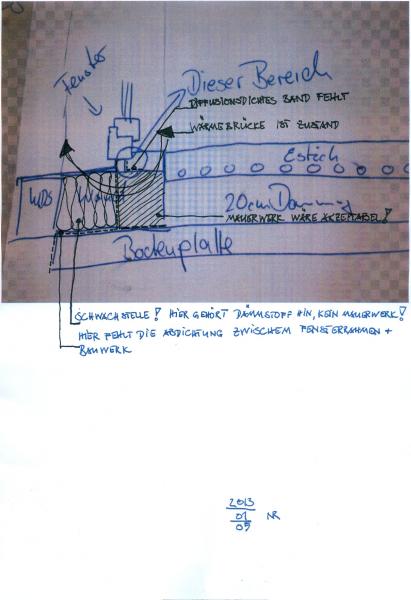 Fenster
Dieser Bereich
DIFFUSIONSDICHTES BAND FEHLT
WÄRMEBRÜCKE IST ZUSTAND
Estrich
WDS
20cm Dämmung
MAUERWERK WÄRE AKZEPTABEL!
Bodenplatte
SCHWACHSTELLE! HIER GEHÖRT DÄMMSTOFF HIN, KEIN MAUERWERK!
HIER FEHLT DIE ABDICHTUNG ZWISCHEM FENSTERRAHMEN +
BAUWERK
2013
01
05
NR